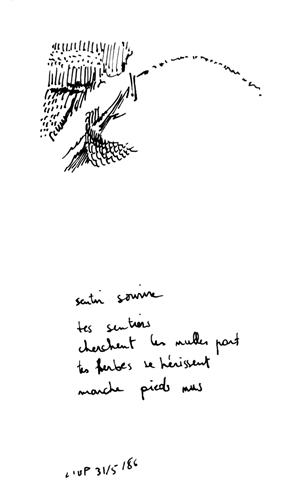 sentir sourire
tes sentiers
cherchent les nulles part
tes herbes se hérissent
marche pieds nus
31/5/86